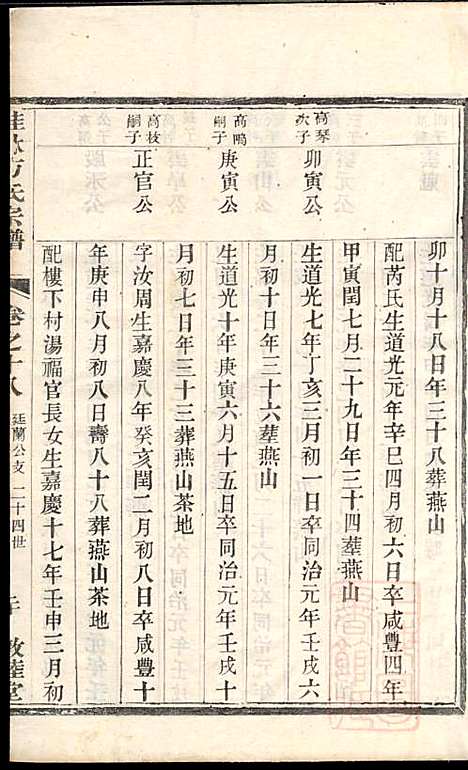 卯十月十八日年三十八葬燕山
配芮氏生道光元年辛巳四月初六日卒咸豐四年
甲寅閏七月二十九日年三十四塟燕山
高琴次子
卯寅公
生道光七年丁亥三月初一日卒同治元年壬戌六
月初十日年三十六塟燕山
高鳴嗣子
庚寅公
生道光十年庚寅六月十五日卒同治元年壬戌十
月初七日年三十三葬燕山茶地
高枝嗣子
正官公
字汝周生嘉慶八年癸亥閏二月初八日卒咸豐十
年庚申八月初八日壽八十八葬燕山茶地
配樓下村湯福官長女生嘉慶十七年壬申三月初
桂林方氏宗譜
卷之十八
廷蘭公支 二十四世
敦睦堂